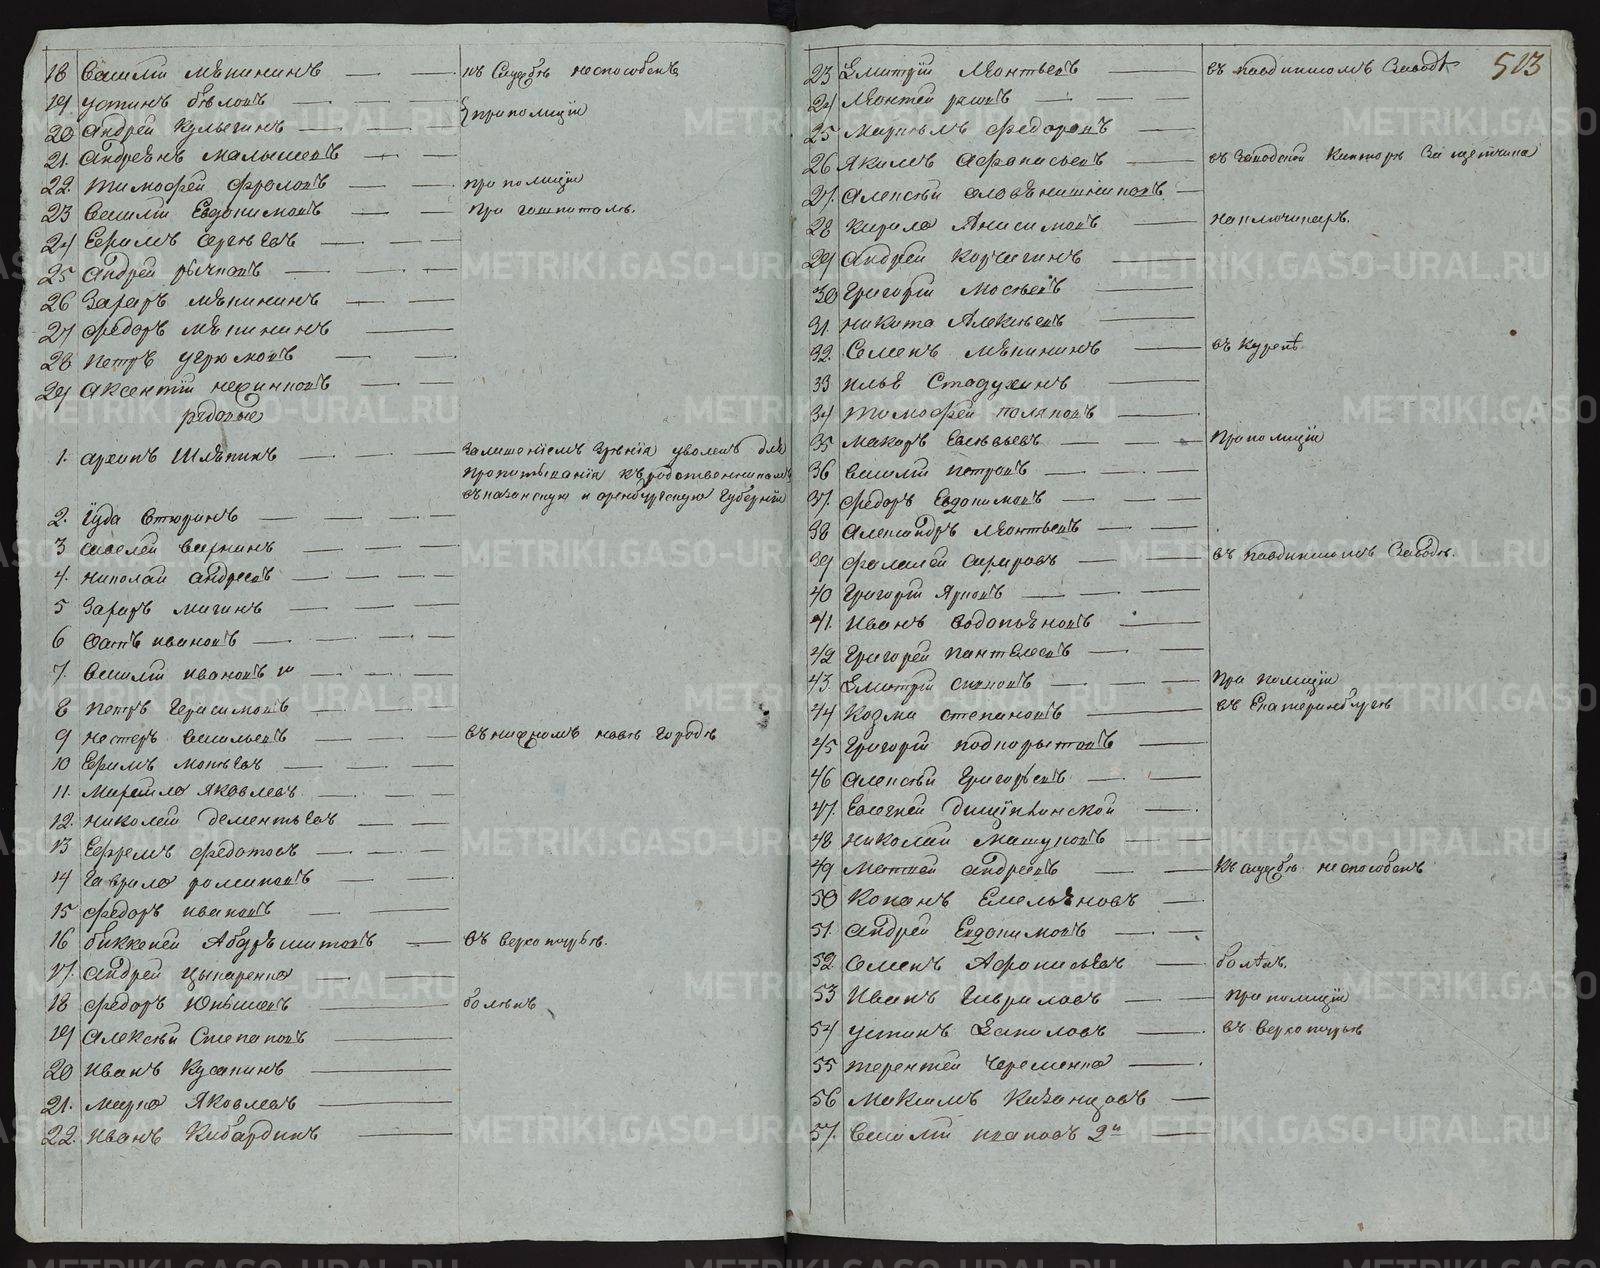 18 Василій Мѣкининъ къ Службѣ неспособенъ
19 Устинъ бѣловъ
20 Андрей Кульгинъ при полиціи
21. Андреянъ Малышевъ
22. Тимофей Фроловъ при полиціи
23 Василій Евдокимовъ при гошпиталѣ.
24 Ефимъ Сергѣевъ
25 Андрей рычковъ
26 Захаръ Мѣкининъ
27 Федоръ Мѣкининъ
28 Петръ Угрюмовъ
29 Аксентій
рядовые
1. Архипъ Шляпинъ Залишеніемъ Зрѣнія уволенъ для
пропитыванія къ родственникамъ
въ казанскую и оренбургскую Губерніи
2. Іуда Втюринъ
3 Савелей
4. Николай Андреевъ
5 Захаръ Мигинъ
6 Фатъ ивановъ
7. Василій ивановъ
8 Петръ Герасимовъ
9 Нестеръ Васильевъ въ нижнемъ новѣ Городѣ
10 Ефимъ Матвѣевъ
11. Михаило Яковлевъ
12. Николай Дементьевъ
13 Ефремъ Федотовъ
14 Гаврило романовъ
15 Федоръ ивановъ
16 биккеней Абдрѣшитовъ въ Верхотурьѣ.
17. Андрей Цыпаренко
18 Федоръ Юнышевъ боленъ
19 Алексѣй Степановъ
20 Иванъ Кусакинъ
21. Марко Яковлевъ
22. Иванъ Кибардинъ
513
23 Дмитрій Леонтьевъ въ Заводѣ
24 Леонтей
25 Федоровъ
26 Якимъ Афанасьевъ въ Заводской Канторѣ За щетчика
27. Алексѣй
28 Кирило Анисимовъ на ключикахъ.
29 Андрей Корчагинъ
30 Григорій Мосѣевъ
31. Никита Алексѣевъ
32. Семенъ Мѣкининъ въ Куренѣ
33 Илья Стадухинъ
34 Тимофей поляковъ
35 Макаръ Евсѣвьевъ при полиціи
36 Василій Петровъ
37. Федоръ Евдокимовъ
38 Александръ Леонтьевъ
39 Фалалей въ Заводѣ.
40 Григорій Ярковъ
41. Иванъ Водопьяновъ
42 Григорей Пантелеевъ
43. Дмитрій при полиціи
44 Козма Степановъ въ Екатеринбургѣ
45 Григорій Подкорытовъ
46 Алексѣй Григорьевъ
47. Евгеней
48 Николай Машуковъ
49 Матвей Андреевъ къ службѣ неспособенъ
50 Кононъ Емельяновъ
51. Андрей Евдокимовъ
52. Семенъ Афонасьевъ болѣнъ.
53 Иванъ Гавриловъ при полиціи
54 Устинъ Даниловъ въ Верхотурьѣ
55 Терентей Череменко
56 Максимъ Казанцовъ
57. Василій ивановъ 2й
METRIKI.GASO-URAL.RU